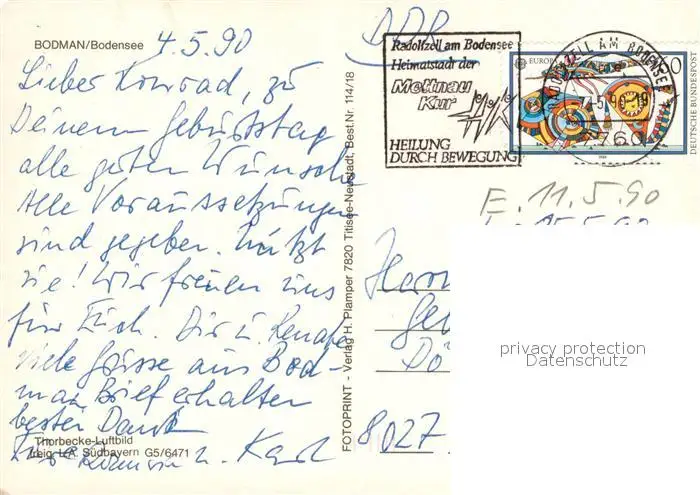 BODMAN/Bodensee
4.5.90
Lieber Konrad, zu
Deinem Geburtstag
alle guten Wünsche
Alle Voraussetzungen
sind gegeben. Nützt
sie! Wir freuen uns
für Euch. Dir u. Renate
viele Grüsse aus Bod-
man Brief erhalten
besten Dank
u. Karl
Thorbecke-Luftbild
freig. I.A. Südbayern G5/6471
FOTOPRINT - Verlag H. Plamper 7820 Titisee-Neustadt, Best.Nr. 114/18
DDR
Radolfzell am Bodensee
Heimatstadt der
Mettnau
Kur
HEILUNG
DURCH BEWEGUNG
RADOLFZELL AM BODENSEE
-4.-5.90-19
7760
EUROPA
DEUTSCHE BUNDESPOST
E. 11.5.90
Herrn
Ge
Dö
8027
privacy protection
Datenschutz